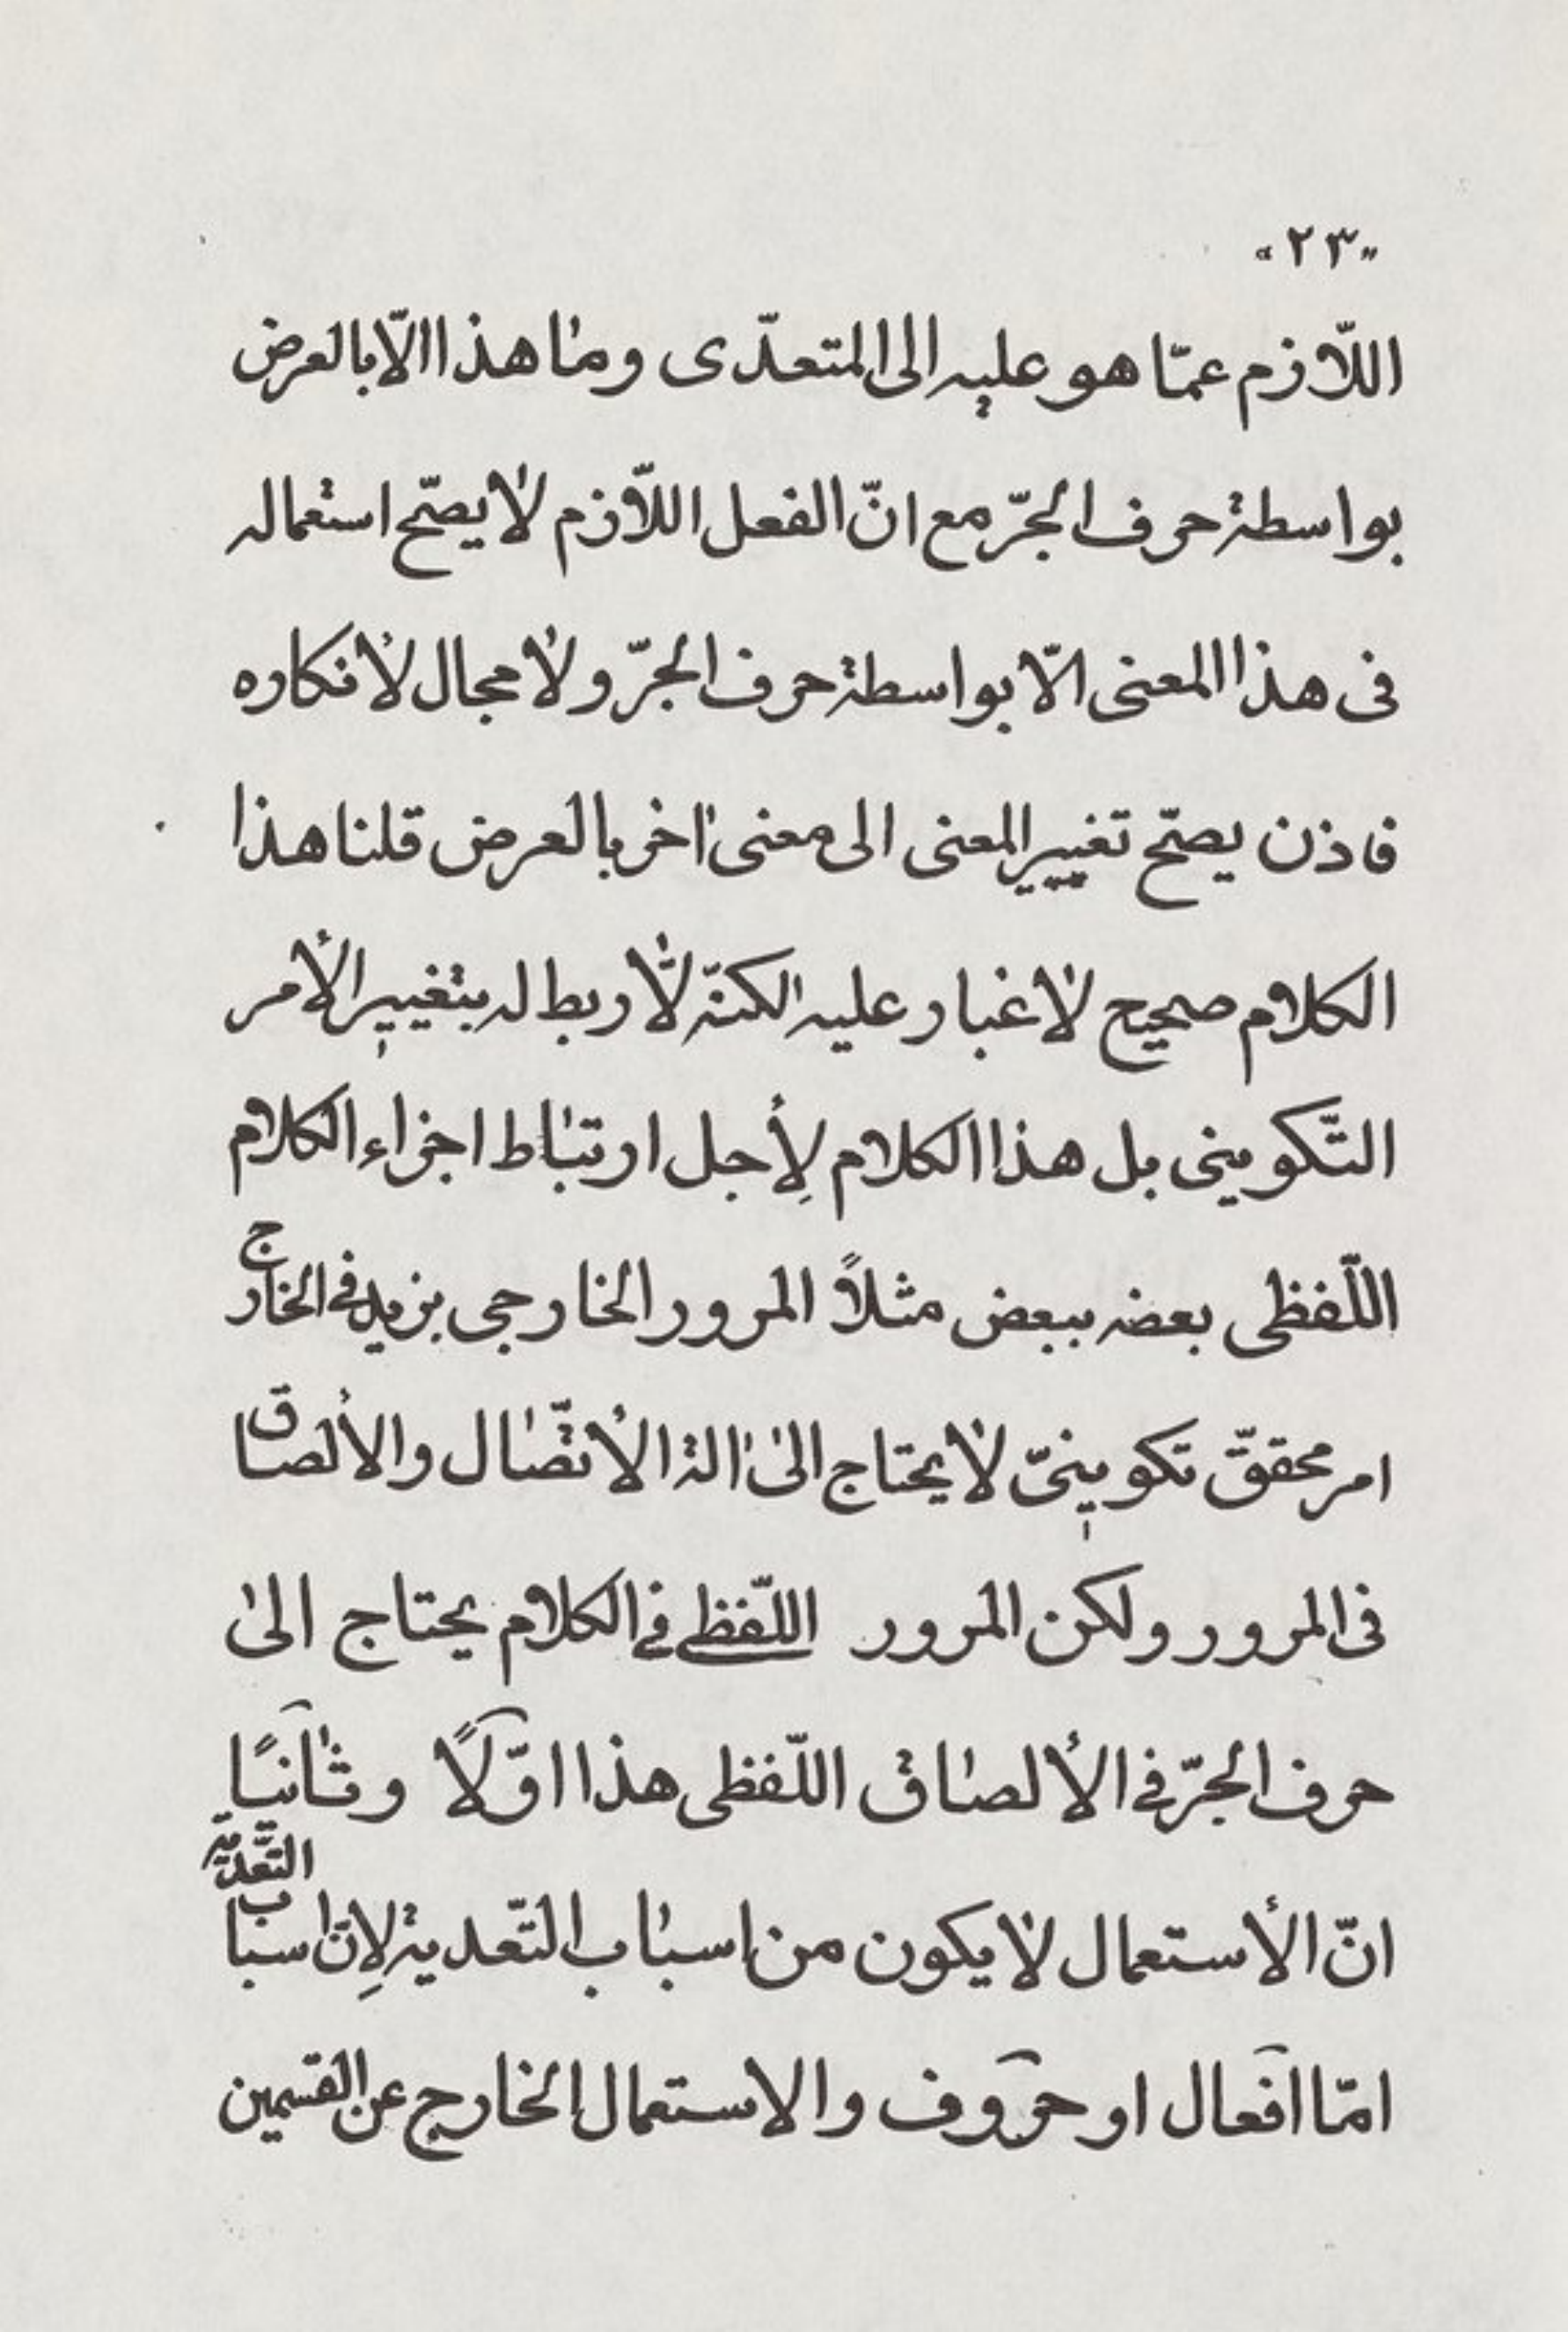 «۲۳»
اللّازم عمّا هو عليه الى المتعدّى وما هذا الّا بالعرض
بواسطة حرف الجرّ مع انّ الفعل اللّازم لا يصحّ استعماله
فى هذا المعنى الّا بواسطة حرف الجرّ ولا مجال لانكاره
فاذن يصحّ تغيير المعنى الى معنى اخر بالعرض قلنا هذا
الكلام صحيح لا غبار عليه لكنّه لا ربط له بتغيير الأمر
التّكوينى بل هذا الكلام لِأجل ارتباط اجزاء الكلام
اللّفظى بعضه ببعض مثلاً المرور الخارجى بزيد فى الخارج
امر محقّق تكوينىّ لا يحتاج الى الة الأتّصال والألصاق
فى المرور ولكن المرور اللّفظى فى الكلام يحتاج الى
حرف الجرّ فى الألصاق اللّفظى هذا اوّلاً وثانيًا
انّ الأستعمال لا يكون من اسباب التّعدية لِانّ اسباب التّعدية
امّا افعال او حروف والاستعمال الخارج عن القسمين